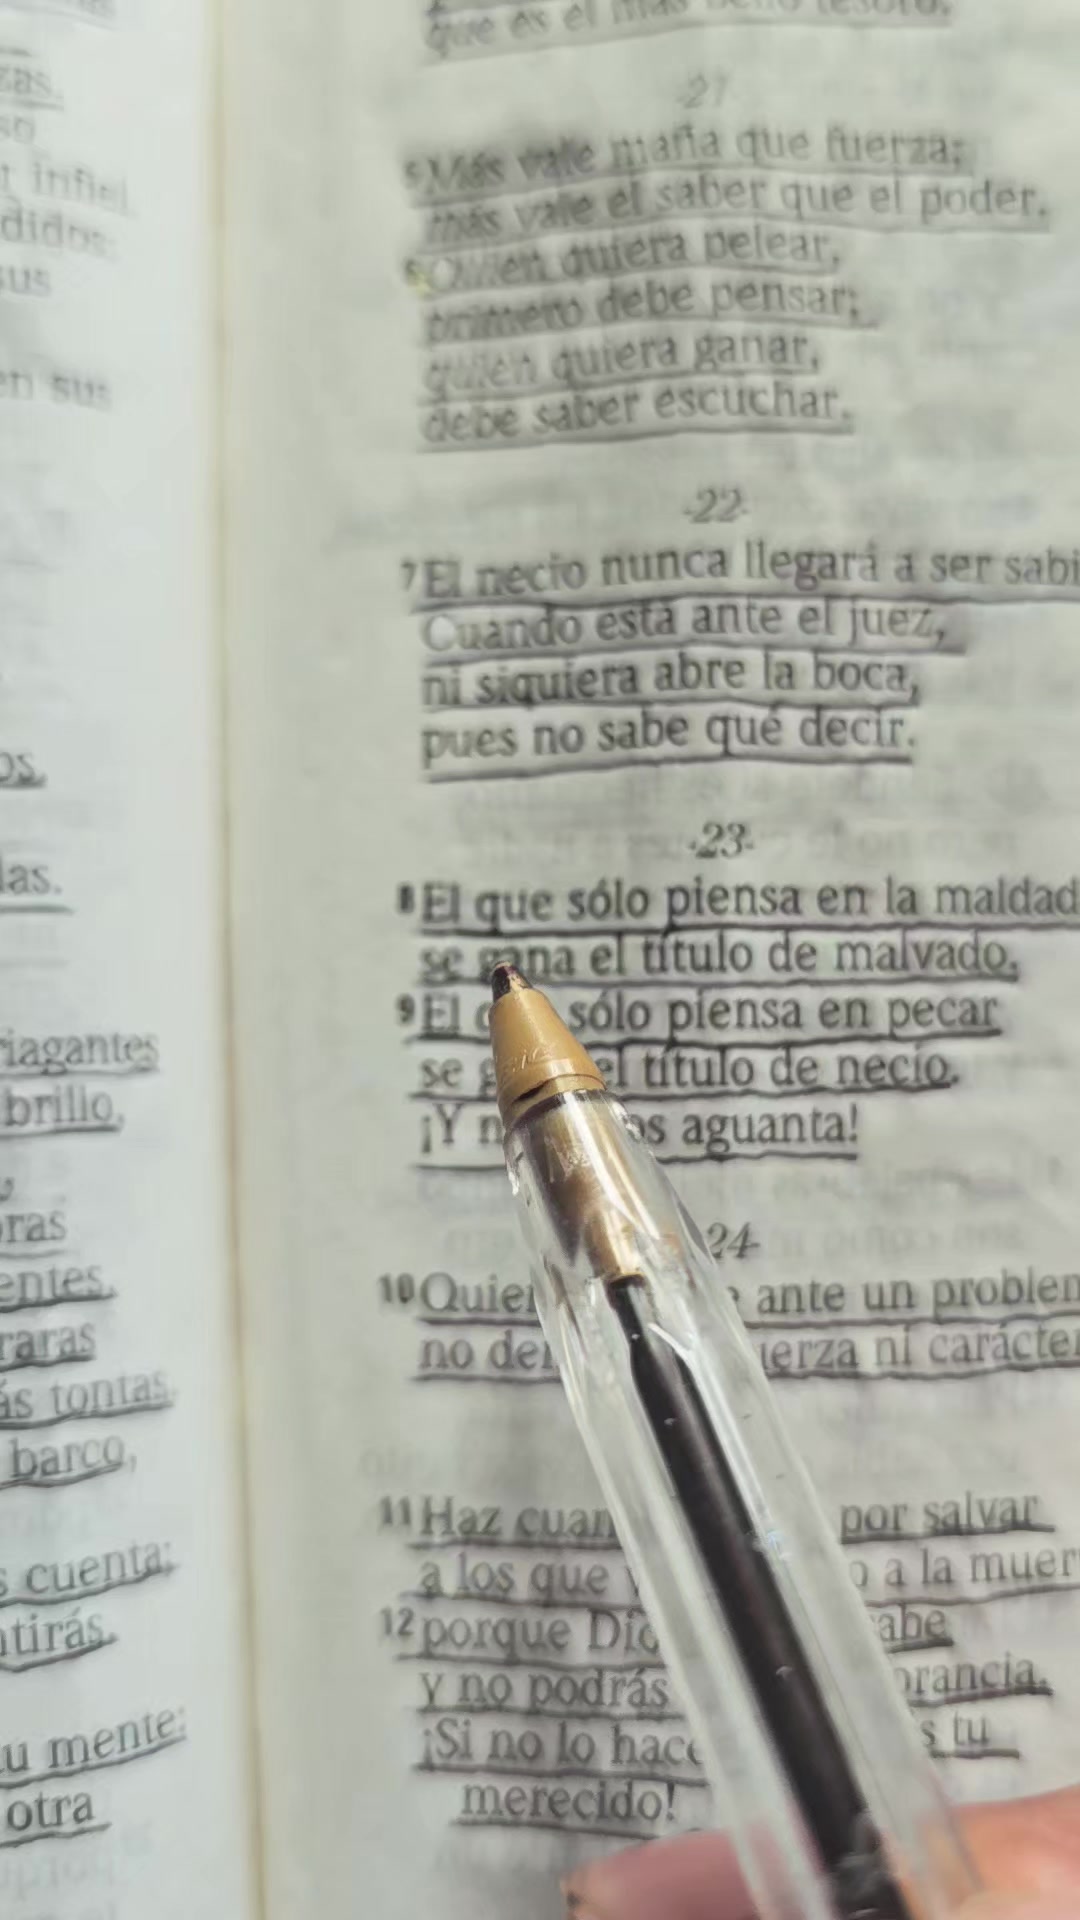 zas.
so
infiel
didos:
sus
en sus
os,
las.
riagantes
brillo,
oras
entes.
raras
ás tontas,
barco,
s cuenta;
ntirás.
u mente;
otra
que es el más bello tesoro.
-21-
5 Más vale maña que fuerza;
más vale el saber que el poder.
6 Quien quiera pelear,
primero debe pensar;
quien quiera ganar,
debe saber escuchar.
-22-
7 El necio nunca llegará a ser sabi
Cuando está ante el juez,
ni siquiera abre la boca,
pues no sabe qué decir.
-23-
8 El que sólo piensa en la maldad
se gana el título de malvado.
9 El sólo piensa en pecar
se el título de necio.
¡Y aguanta!
24-
10 Quien ante un problem
no ni carácter
11 Haz por salvar
a los que a la muer
12 porque
y no podrás
¡Si no lo tu
merecido!